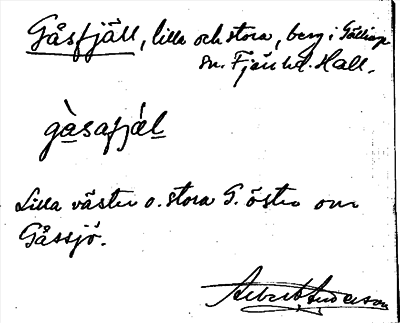 Gåsfjäll, lilla och stora, berg i Gällinge
sn. Fjäre hd. Hall.
gàsafjäl
Lilla väster o. stora G. öster om
Gåssjö.
Albert Anderson